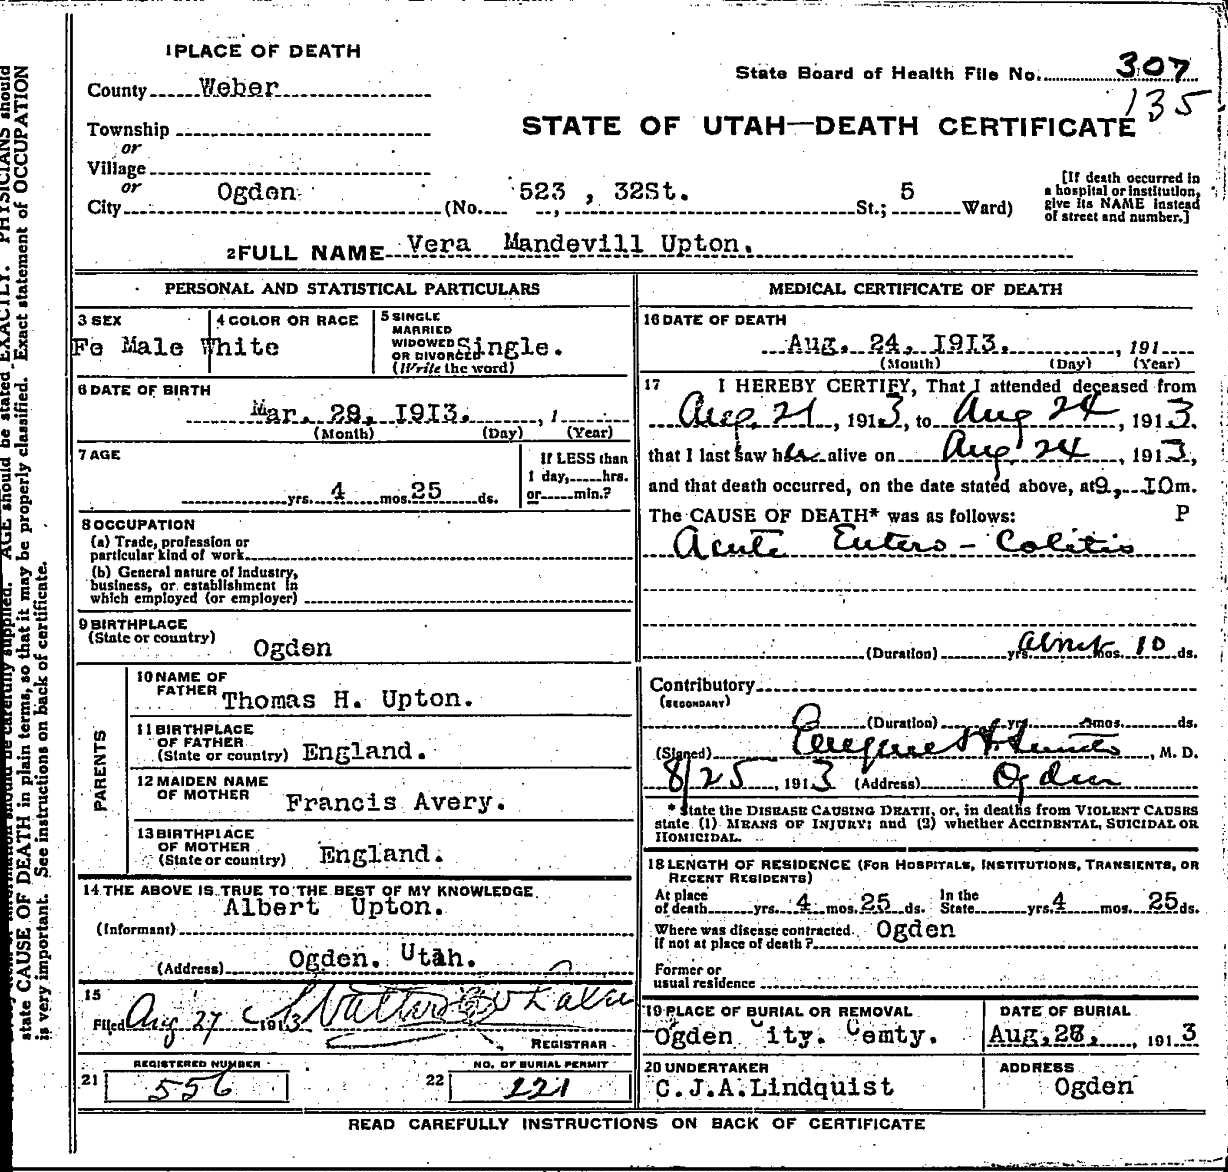 1 PLACE OF DEATH
State Board of Health File No. 307
135
County Weber
STATE OF UTAH—DEATH CERTIFICATE
Township
or
Village
or
City Ogden (No. 523, 32St. St.; 5 Ward)
[If death occurred in
a hospital or institution,
give its NAME instead
of street and number.]
2 FULL NAME Vera Mandevill Upton.
PERSONAL AND STATISTICAL PARTICULARS
3 SEX
Fe Male
4 COLOR OR RACE
White
5 SINGLE
MARRIED
WIDOWED
OR DIVORCED Single.
(Write the word)
6 DATE OF BIRTH
Mar. 29, 1913. , 1
(Month) (Day) (Year)
7 AGE
yrs. 4 mos. 25 ds.
If LESS than
1 day, hrs.
or min.?
8 OCCUPATION
(a) Trade, profession or
particular kind of work
(b) General nature of industry,
business, or establishment in
which employed (or employer)
9 BIRTHPLACE
(State or country) Ogden
PARENTS
10 NAME OF
FATHER Thomas H. Upton.
11 BIRTHPLACE
OF FATHER
(State or country) England.
12 MAIDEN NAME
OF MOTHER Francis Avery.
13 BIRTHPLACE
OF MOTHER
(State or country) England.
14 THE ABOVE IS TRUE TO THE BEST OF MY KNOWLEDGE
Albert Upton.
(Informant)
(Address) Ogden. Utah.
15
Filed Aug 27 1913
REGISTRAR
REGISTERED NUMBER
21 556
NO. OF BURIAL PERMIT
22 221
MEDICAL CERTIFICATE OF DEATH
16 DATE OF DEATH
Aug. 24, 1913. , 191
(Month) (Day) (Year)
17 I HEREBY CERTIFY, That I attended deceased from
Aug. 21, 1913, to Aug 24, 1913.
that I last saw her alive on Aug. 24, 1913,
and that death occurred, on the date stated above, at 9, 10m.
The CAUSE OF DEATH* was as follows: P
Acute Entero-Colitis
(Duration) yrs. about mos. 10 ds.
Contributory
(SECONDARY)
(Duration) yrs. mos. ds.
(Signed) , M. D.
8/25, 1913 (Address) Ogden
* State the DISEASE CAUSING DEATH, or, in deaths from VIOLENT CAUSES
state (1) MEANS OF INJURY; and (2) whether ACCIDENTAL, SUICIDAL OR
HOMICIDAL.
18 LENGTH OF RESIDENCE (FOR HOSPITALS, INSTITUTIONS, TRANSIENTS, OR
RECENT RESIDENTS)
At place
of death yrs. 4 mos. 25 ds.
In the
State yrs. 4 mos. 25 ds.
Where was disease contracted Ogden
if not at place of death?
Former or
usual residence
19 PLACE OF BURIAL OR REMOVAL
Ogden City. Cemty.
DATE OF BURIAL
Aug. 28, 1913
20 UNDERTAKER
C.J.A. Lindquist
ADDRESS
Ogden
READ CAREFULLY INSTRUCTIONS ON BACK OF CERTIFICATE
AGE should be stated EXACTLY. PHYSICIANS should
state CAUSE OF DEATH in plain terms, so that it may be properly classified. Exact statement of OCCUPATION
is very important. See instructions on back of certificate.